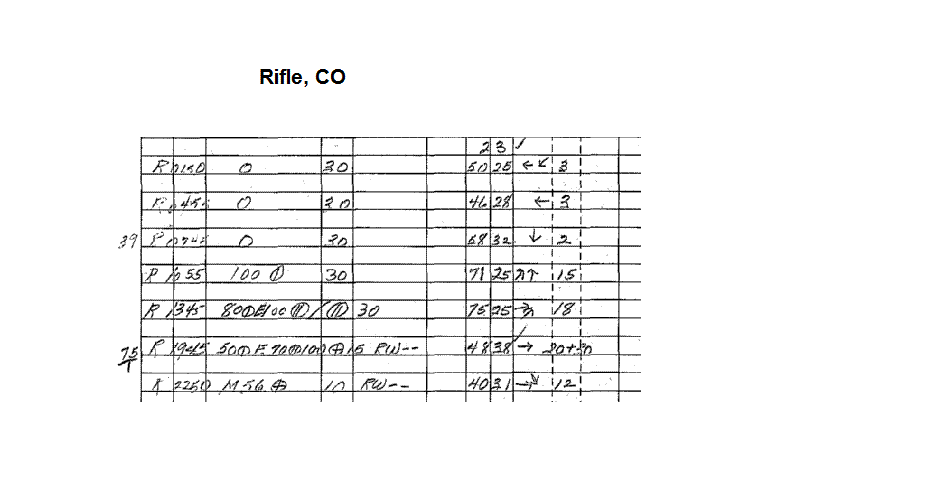 Rifle, CO
23 ✓
R 0150 O 30 50 28 ←↙ 3
R 45 O 30 46 28 ← 3
39 R O 30 68 32 ↓ 2
R 1055 100 ⦶ 30 71 25 ↗↑ 15
R 1345 80⦶E100⦶/⦶ 30 75 25 → 18
75 R 1945 50⦶E70⦶100⊕15 RW-- 48 38 → 20+30
T
R 2250 M56⊕ 10 RW-- 40 31 →↘ 12